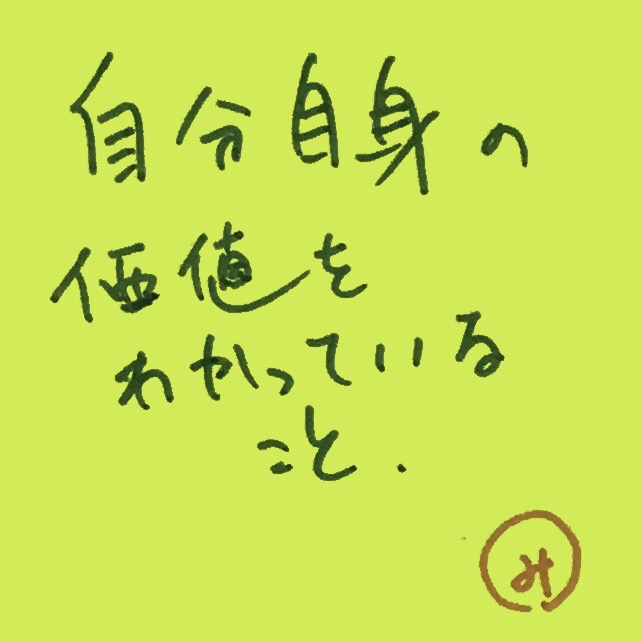 自分自身の
価値を
わかっている
こと.
み